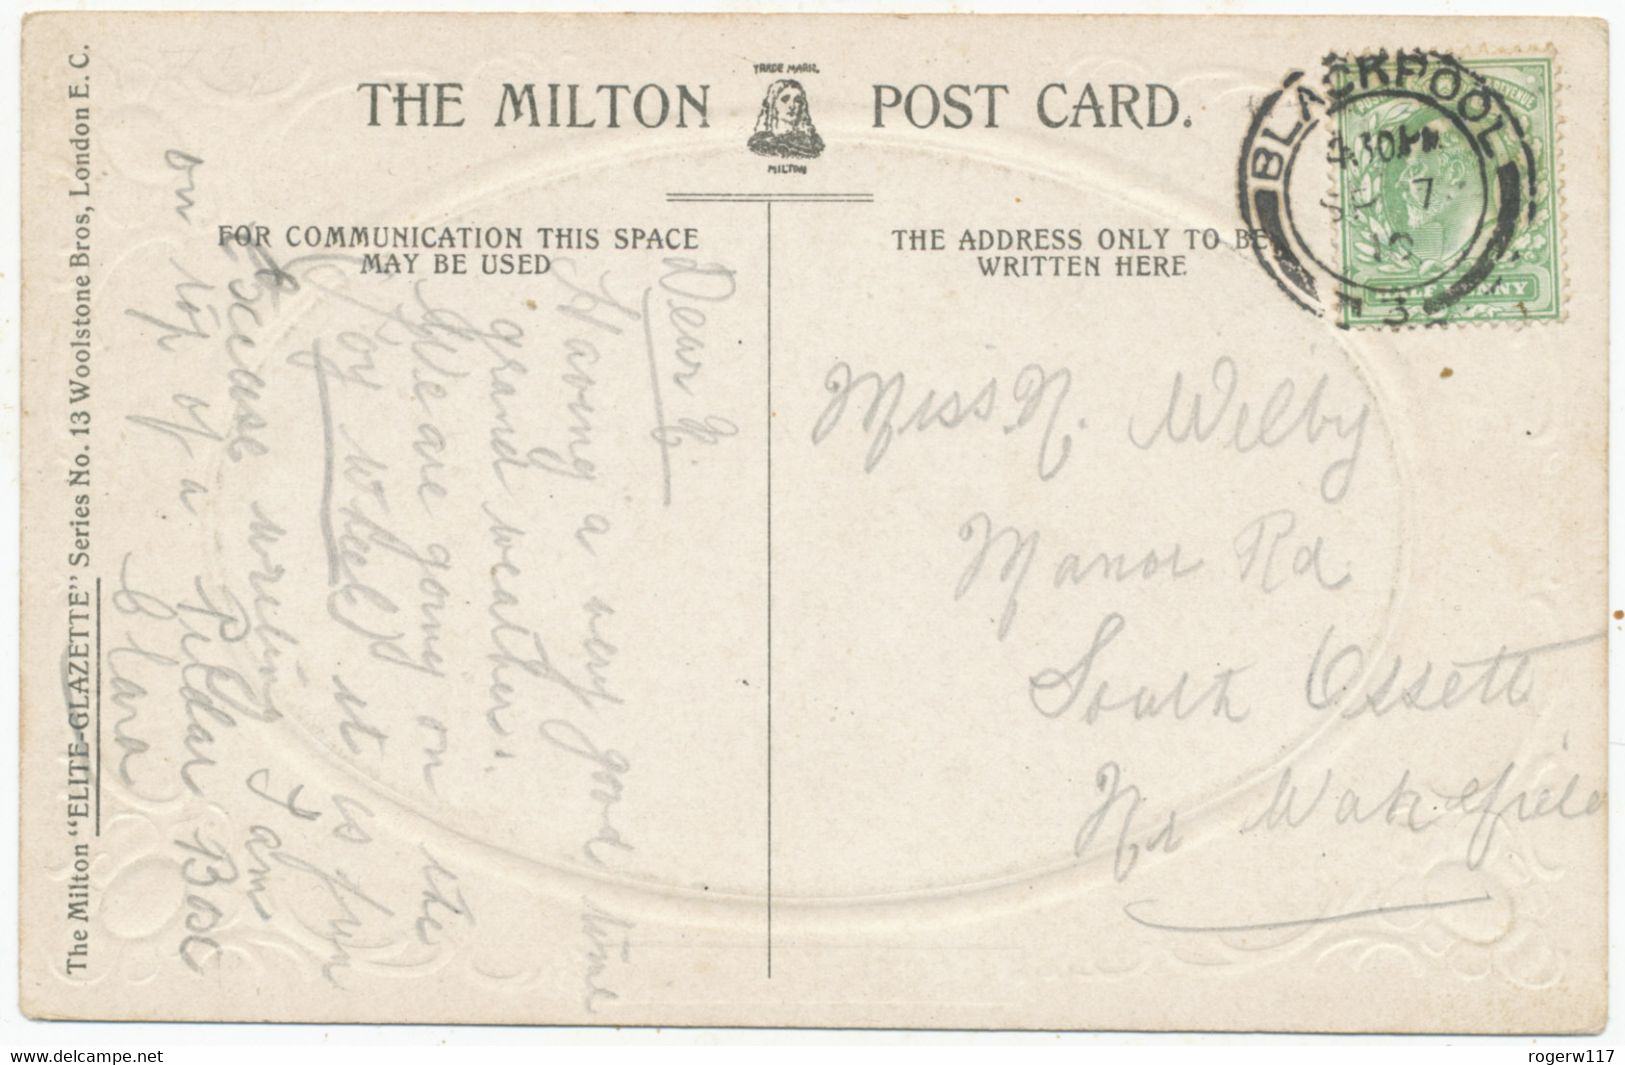 THE MILTON POST CARD.
TRADE MARK.
MILTON
FOR COMMUNICATION THIS SPACE
MAY BE USED
THE ADDRESS ONLY TO BE
WRITTEN HERE
BLACKPOOL
7
10
HALFPENNY
Dear N.
Having a very good time
grand weather.
We are going on the
Joy wheel it is fun
Excuse writing I am
on top of a Pillar Box
Clara
Miss N. Wilby
Manor Rd
South Ossett
Nr Wakefield
The Milton "ELITE-GLAZETTE" Series No. 13 Woolstone Bros, London E. C.
rogerw117